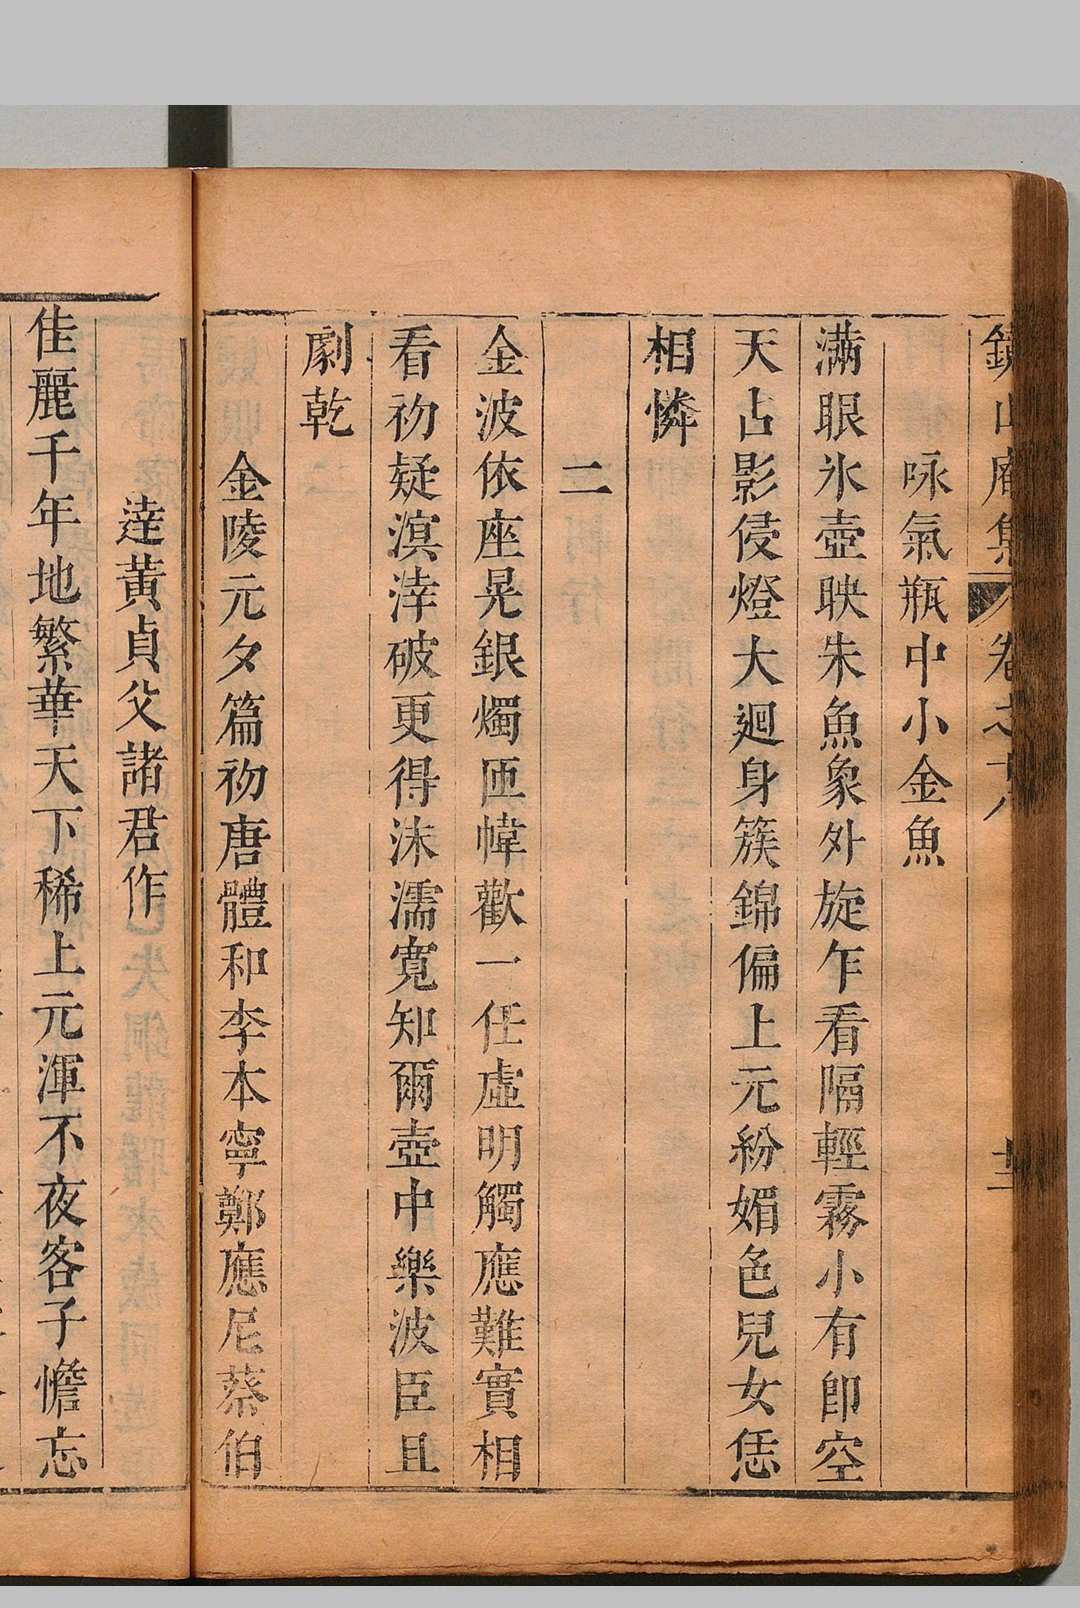 鏡山庵集 卷之十八 十二
咏氣瓶中小金魚
滿眼氷壺映朱魚象外旋乍看隔輕霧小有卽空
天占影侵燈大迴身簇錦偏上元紛媚色兒女恁
相憐
二
金波依座晃銀燭匝幃歡一任虛明觸應難實相
看初疑溟涬破更得沫濡寬知爾壺中樂波臣且
劇乾
金陵元夕篇初唐體和李本寧鄭應尼蔡伯
達黃貞父諸君作
佳麗千年地繁華天下稀上元渾不夜客子憺忘